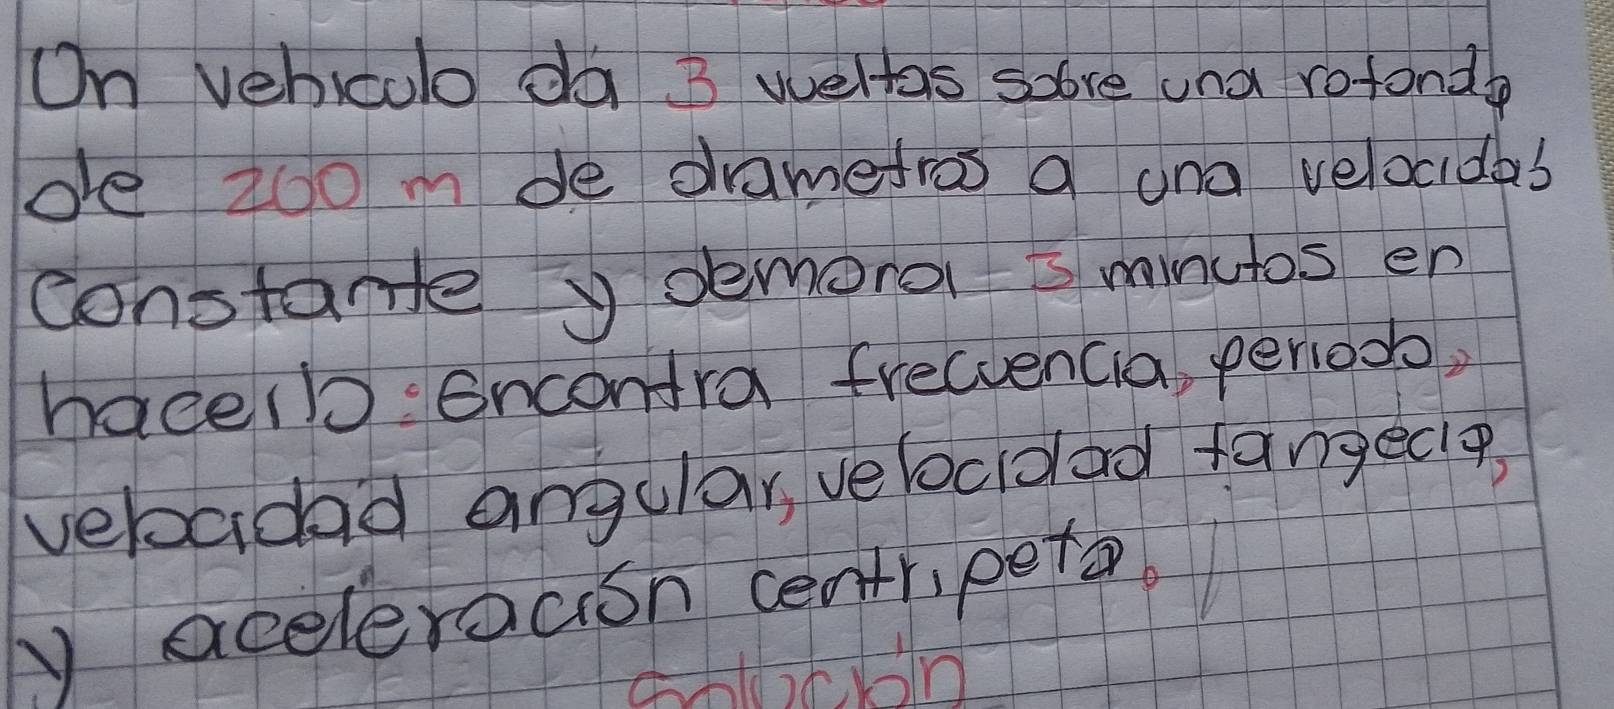 Un vehiculo da 3 vueltas sobre una rotonda
de 200 m de diametros a una velocidab
constante y demora 3 minutos en
hacerlo: Encontra frecuencia, periodo,
velocidad angular, velocidad tangecia,
y aceleración centripeta.
solución